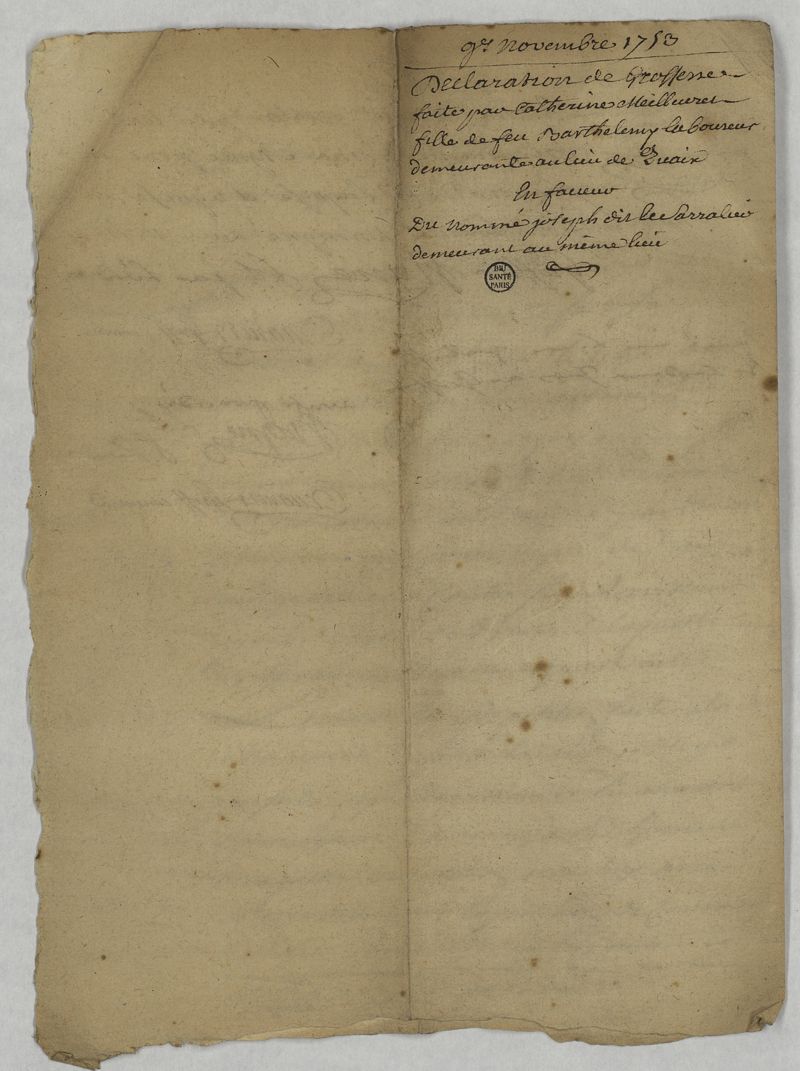 9e. Novembre 1753
Declaration de Grossesse
faite par Catherine Meillueret
fille de feu Barthelemy laboureur
demeurante au lieu de Quaix
En faveur
Du nommé joseph dit le
demeurant au même lieu
BIU
SANTÉ
PARIS